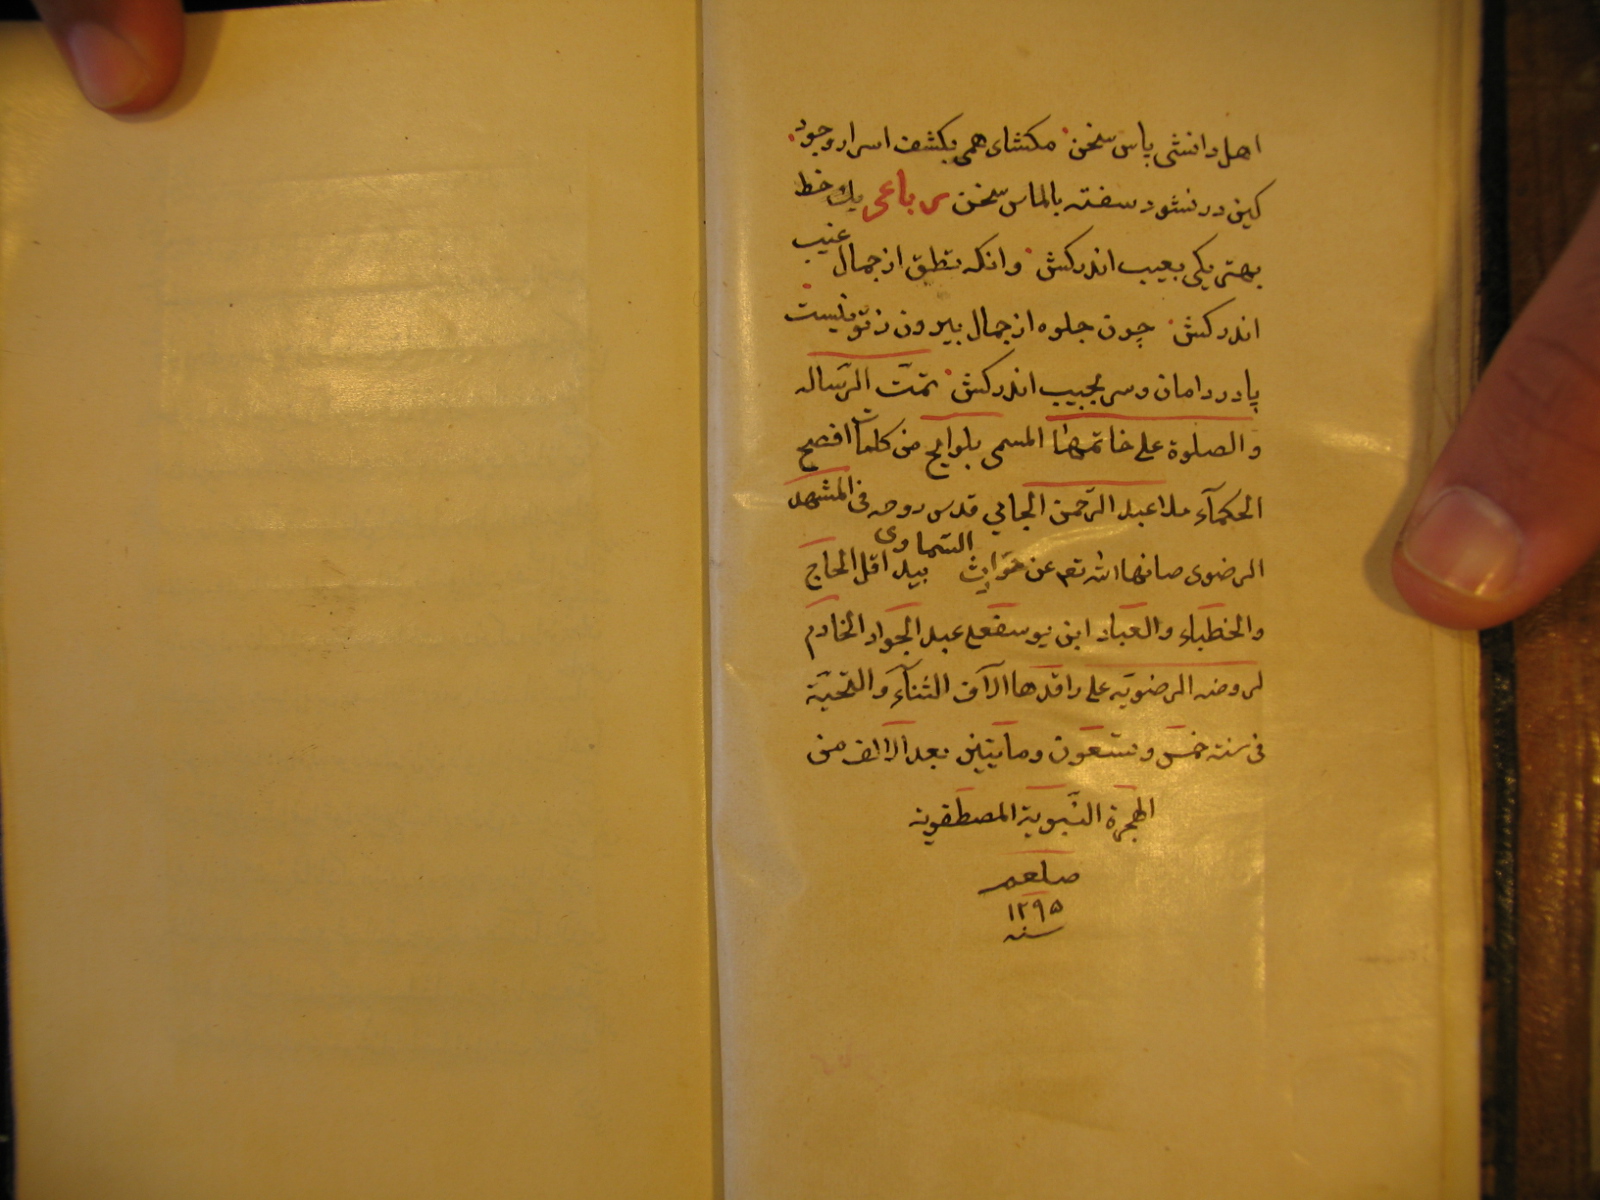 اهل دانشی پاس سخن مکشای همی بکشف اسرار وجود
کین در نشود سفته بالماس سخن رباعی یك خط
بهتر یکی بعیب اندرکش وانکه تطق از جمال غیب
اندرکش چون جلوه از جمال بیرون ز تو نیست
پا در دامان و سر بجیب اندرکش تمّت الرّساله
والصلوة علی خاتمها المسمی بلوایح من کلمات افصح
الحکمآء ملا عبد الرّحمن الجامی قدس روحه فی المشهد
الرضوی صانها الله تعم عن حوادث السّماوی بید اقل الحاج
والخطباء والعباد ابن یوسفعلی عبد الجواد الخادم
لروضه الرضویّه علی راقدها الآف الثنآء والتّحیّة
فی سنه خمس وتسعون وماتیین بعد الالف من
الهجرة النّبویة المصطفویه
صلعم
۱۲۹۵
سنه